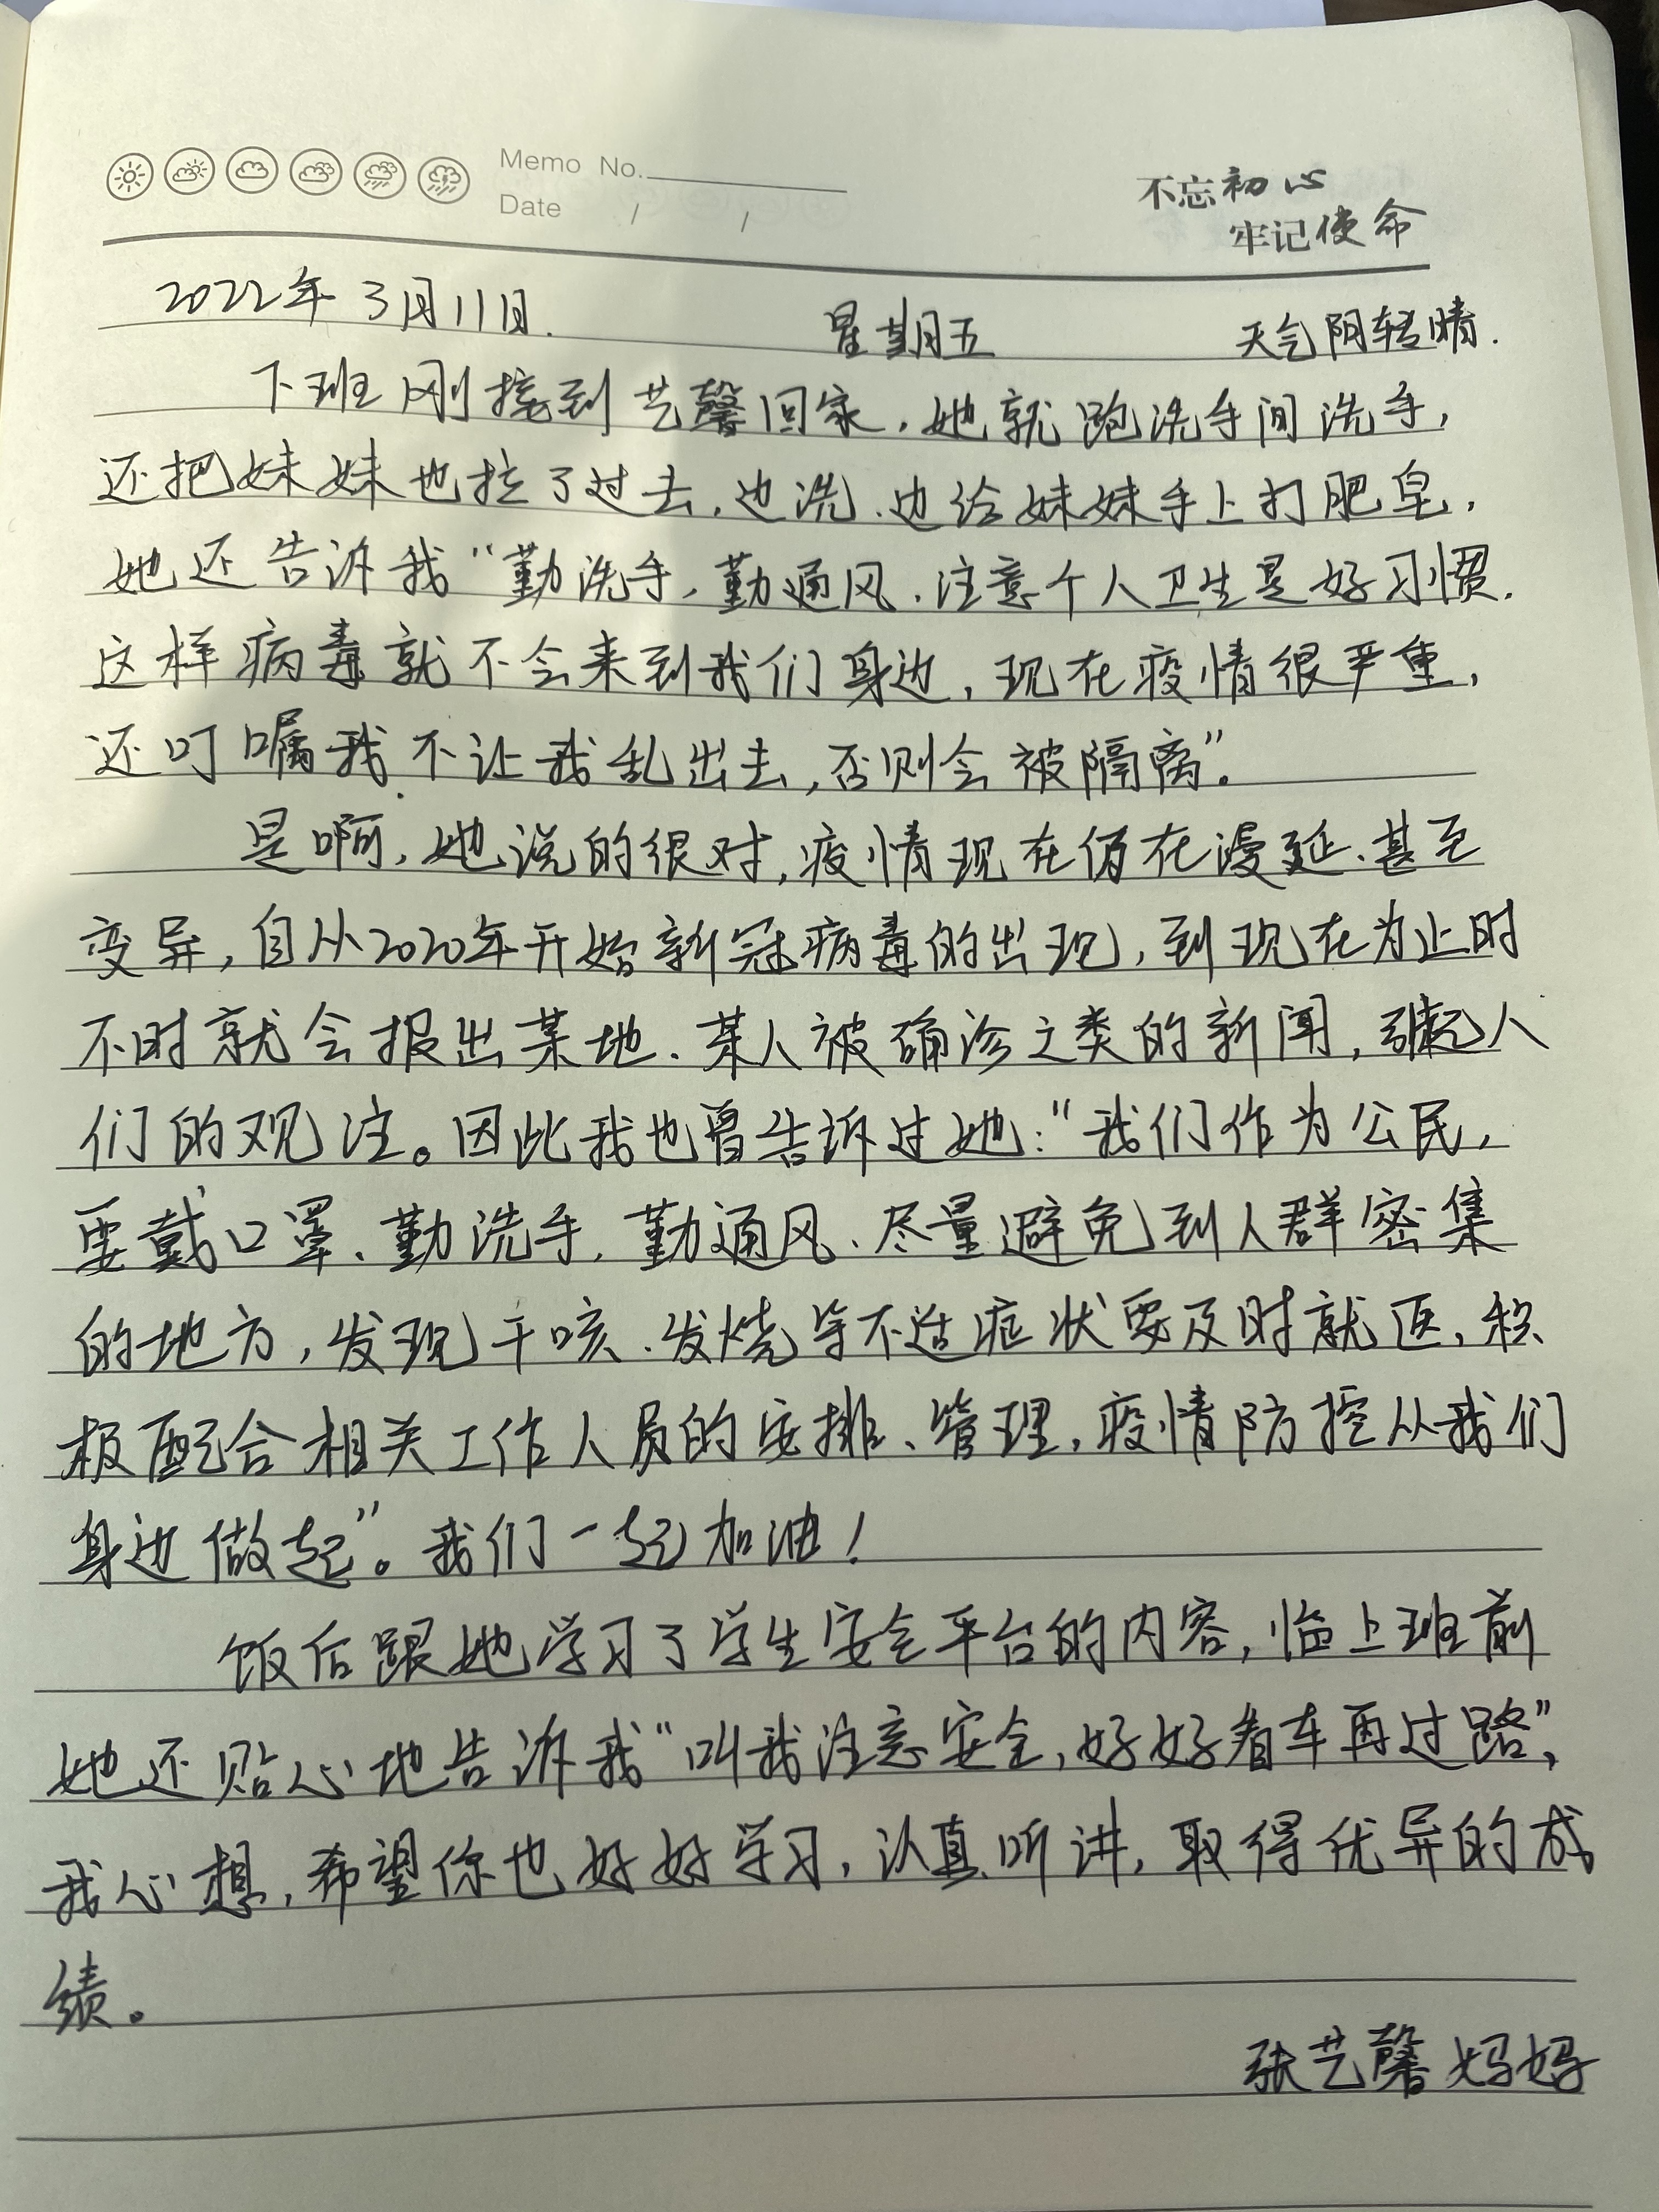 Memo No.
Date / /
不忘初心
牢记使命
2022年3月11日. 星期五 天气阴转晴.
下班刚接到艺馨回家,她就跑洗手间洗手,
还把妹妹也拉了过去,边洗、边给妹妹手上打肥皂,
她还告诉我“勤洗手,勤通风、注意个人卫生是好习惯.
这样病毒就不会来到我们身边,现在疫情很严重,
还叮嘱我不让我乱出去,否则会被隔离”。
是啊,她说的很对,疫情现在仍在漫延、甚至
变异,自从2020年开始新冠病毒的出现,到现在为止时
不时就会报出某地、某人被确诊之类的新闻,引起人
们的观注。因此我也曾告诉过她:“我们作为公民,
要戴口罩、勤洗手,勤通风、尽量避免到人群密集
的地方,发现干咳、发烧等不适症状要及时就医,积
极配合相关工作人员的安排、管理,疫情防控从我们
身边做起”。我们一起加油!
饭后跟她学习了学生安全平台的内容,临上班前
她还贴心地告诉我“叫我注意安全,好好看车再过路”,
我心想,希望你也好好学习,认真听讲,取得优异的成
绩。
张艺馨妈妈